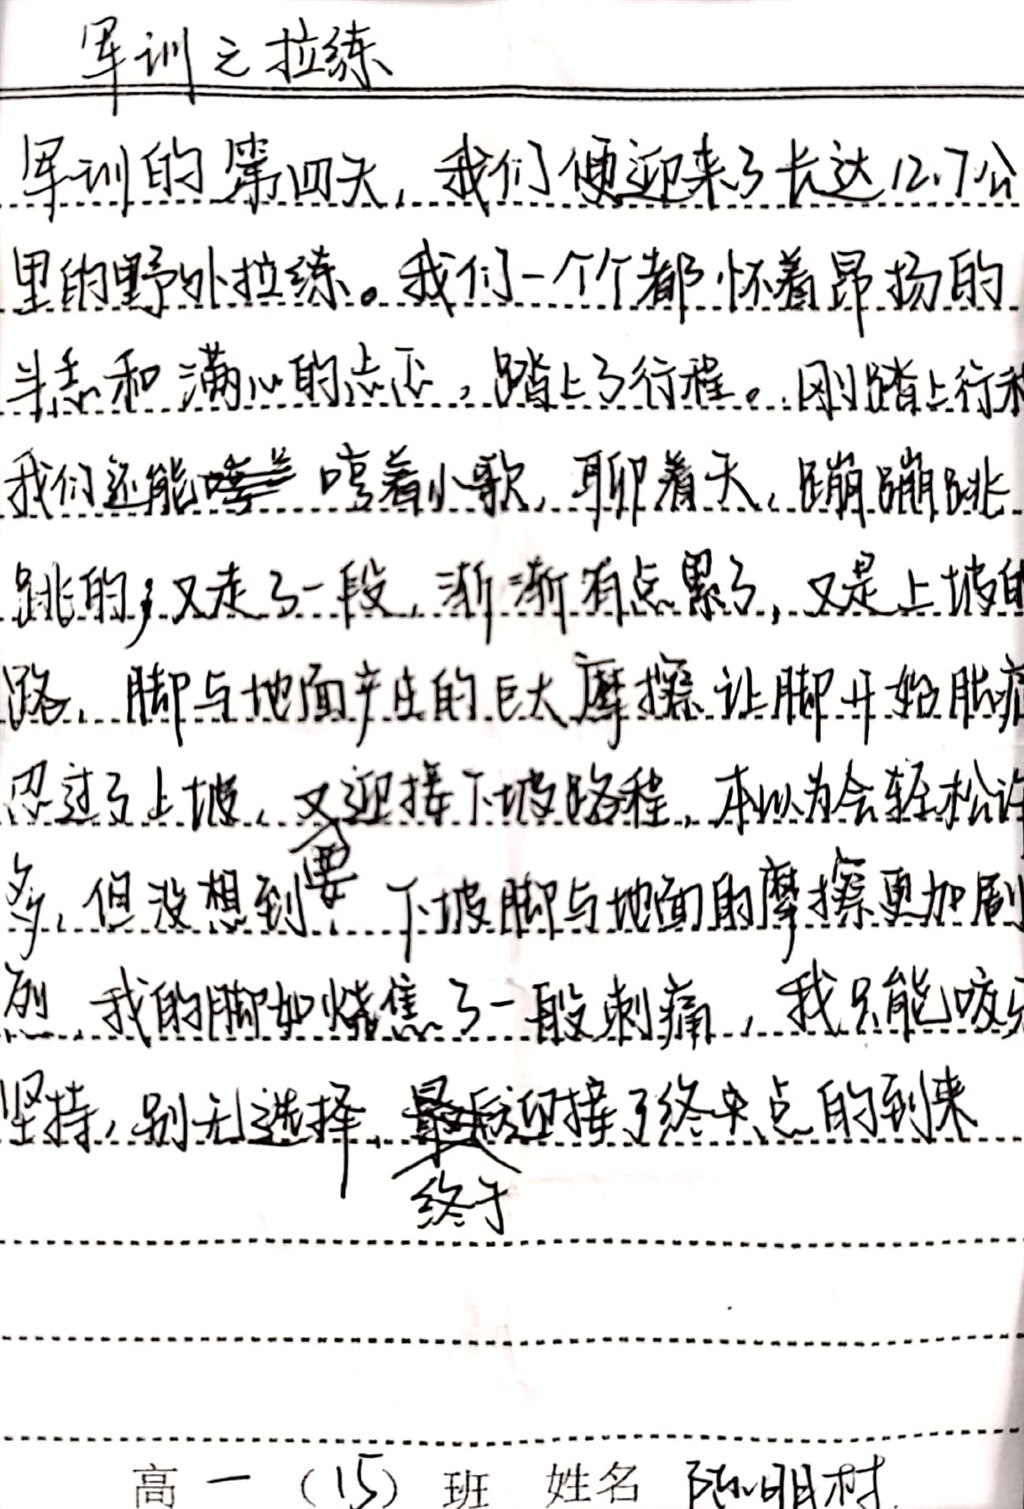 军训之拉练
军训的第四天，我们便迎来了长达12.7公
里的野外拉练。我们一个个都怀着昂扬的
斗志和满心的忐忑，踏上了行程。刚踏上行程
我们还能哼着小歌，聊着天，蹦蹦跳
跳的；又走了一段，渐渐有点累了，又是上坡的
路，脚与地面产生的巨大摩擦让脚开始胀痛
忍过了上坡，又要迎接下坡路程，本以为会轻松许
多，但没想到 下坡脚与地面的摩擦更加剧
烈，我的脚如烧焦了一般刺痛，我只能咬牙
坚持，别无选择，终于迎接了终点的到来
高一（15）班 姓名 陈明村